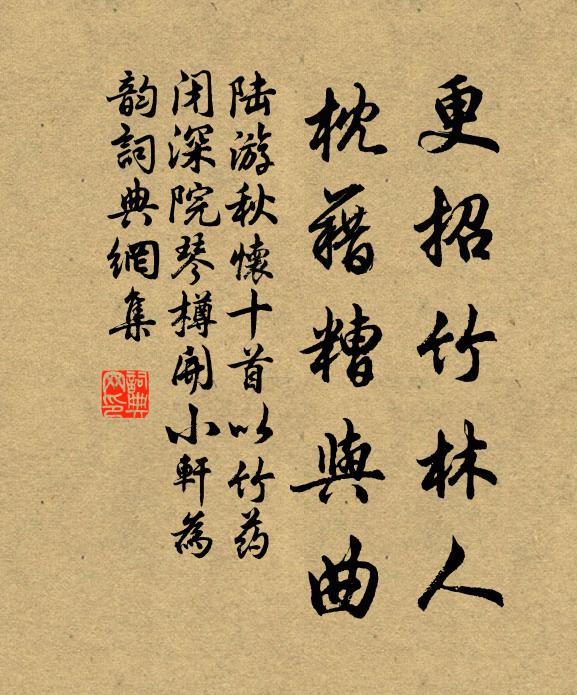 更招竹林人
枕藉糟與曲
陆游秋懷十首以竹药
闭深院琴樽開小軒為
韵詞典網集
詞典
网印